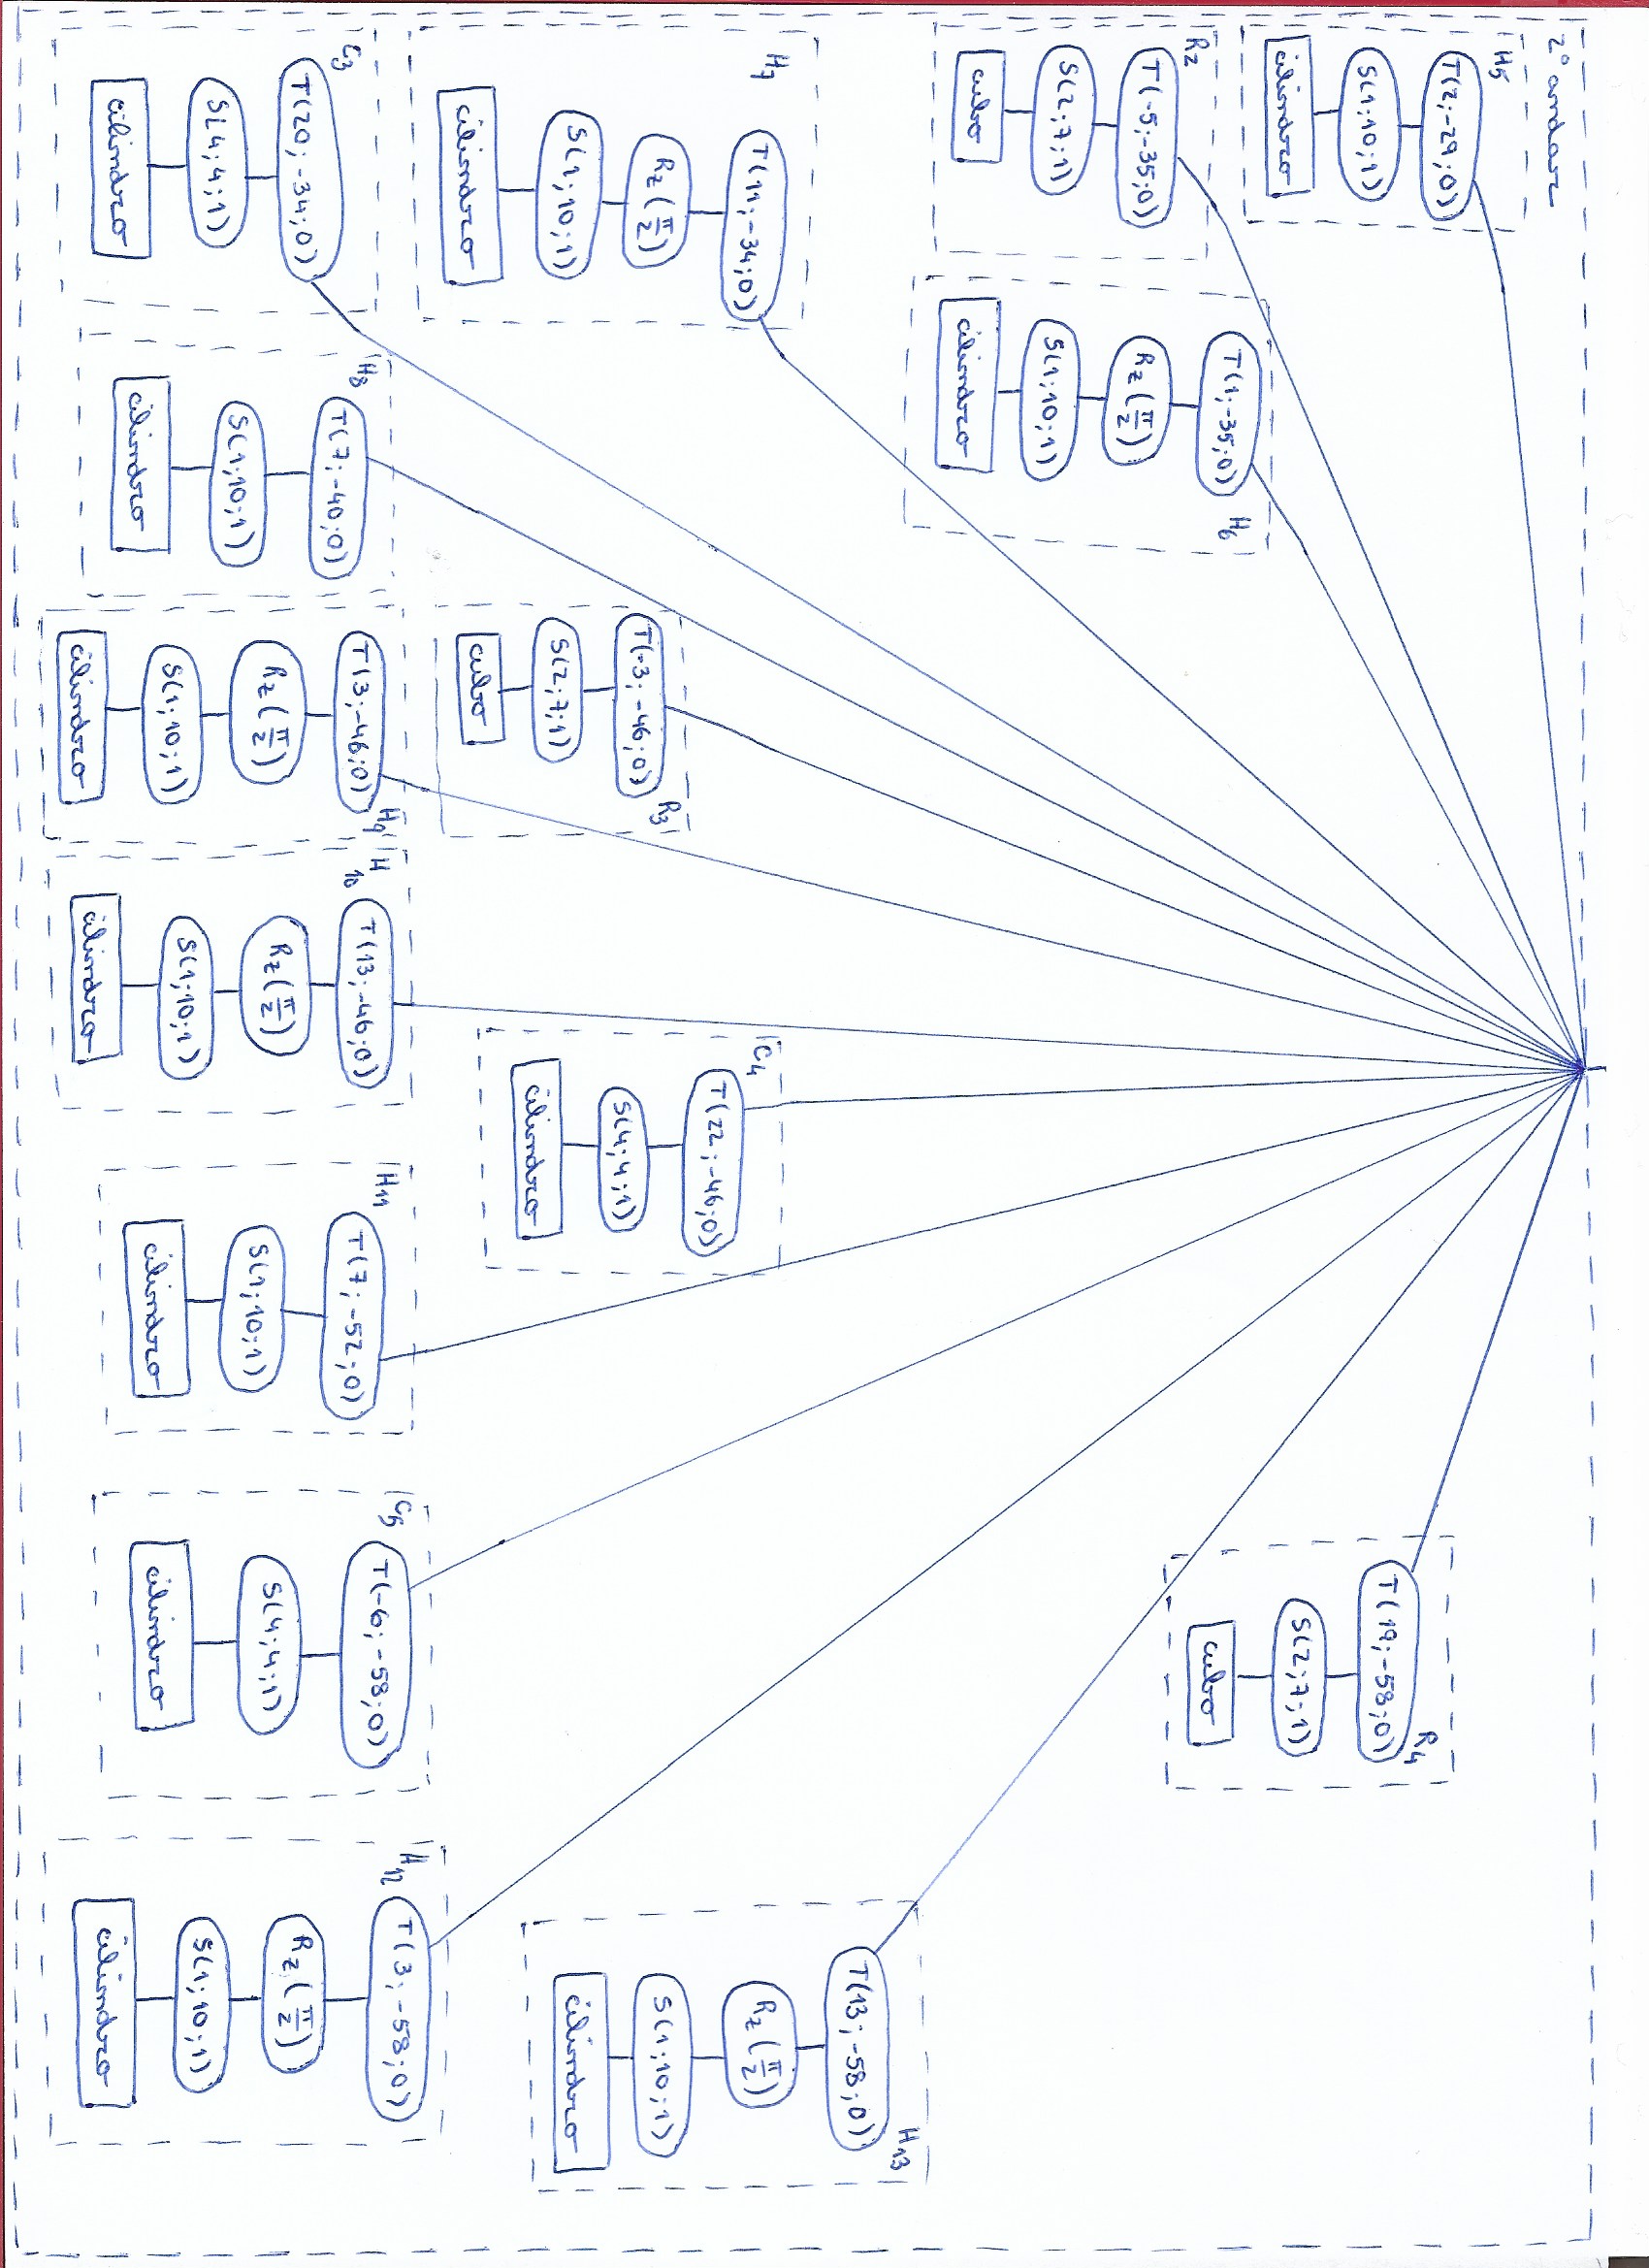 2º andar
H5
T(2;-29;0)
S(1;10;1)
cilindro
R2
T(-5;-35;0)
S(2;7;1)
cubo
H6
T(1;-35;0)
Rz(π/2)
S(1;10;1)
cilindro
H7
T(11;-34;0)
Rz(π/2)
S(1;10;1)
cilindro
C3
T(20;-34;0)
S(4;4;1)
cilindro
H8
T(7;-40;0)
S(1;10;1)
cilindro
R3
T(-3;-46;0)
S(2;7;1)
cubo
H9
T(3;-46;0)
Rz(π/2)
S(1;10;1)
cilindro
H10
T(13;-46;0)
Rz(π/2)
S(1;10;1)
cilindro
C4
T(22;-46;0)
S(4;4;1)
cilindro
H11
T(7;-52;0)
S(1;10;1)
cilindro
C5
T(-6;-58;0)
S(4;4;1)
cilindro
H12
T(3;-58;0)
Rz(π/2)
S(1;10;1)
cilindro
H13
T(13;-58;0)
Rz(π/2)
S(1;10;1)
cilindro
R4
T(19;-58;0)
S(2;7;1)
cubo